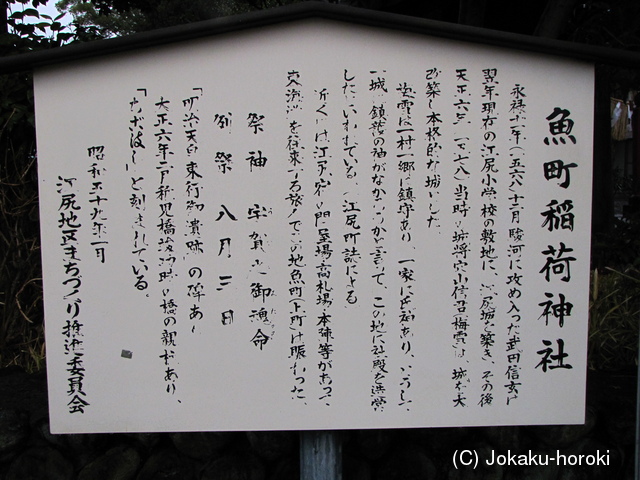 魚町稲荷神社
永禄十一年(一五六八)十二月駿河に攻め入った武田信玄は
翌年現在の江尻小学校の敷地に、江尻城を築き、その後
天正六年(一五七八)当時の城将穴山信君(梅雪)は、城を大
改築し本格的な城とした。
梅雪は一村一郷に鎮守あり、一家に氏神あり、
城に鎮護の神がなか と言って、この地に社殿を造営
したといわれている(江尻町誌による)
近くには江尻宿の門、高札場、本陣等があって、
東海道を往来する旅人でこの地魚町(下町)は賑わった、
祭神 宇賀之御魂命
例祭 八月三日
「明治天皇東行御遺跡」の碑あり
大正六年 江尻橋 橋の親柱あり、
と刻まれている。
昭和五十九年一月
江尻地区まちづくり推進委員会
(C) Jokaku-horoki